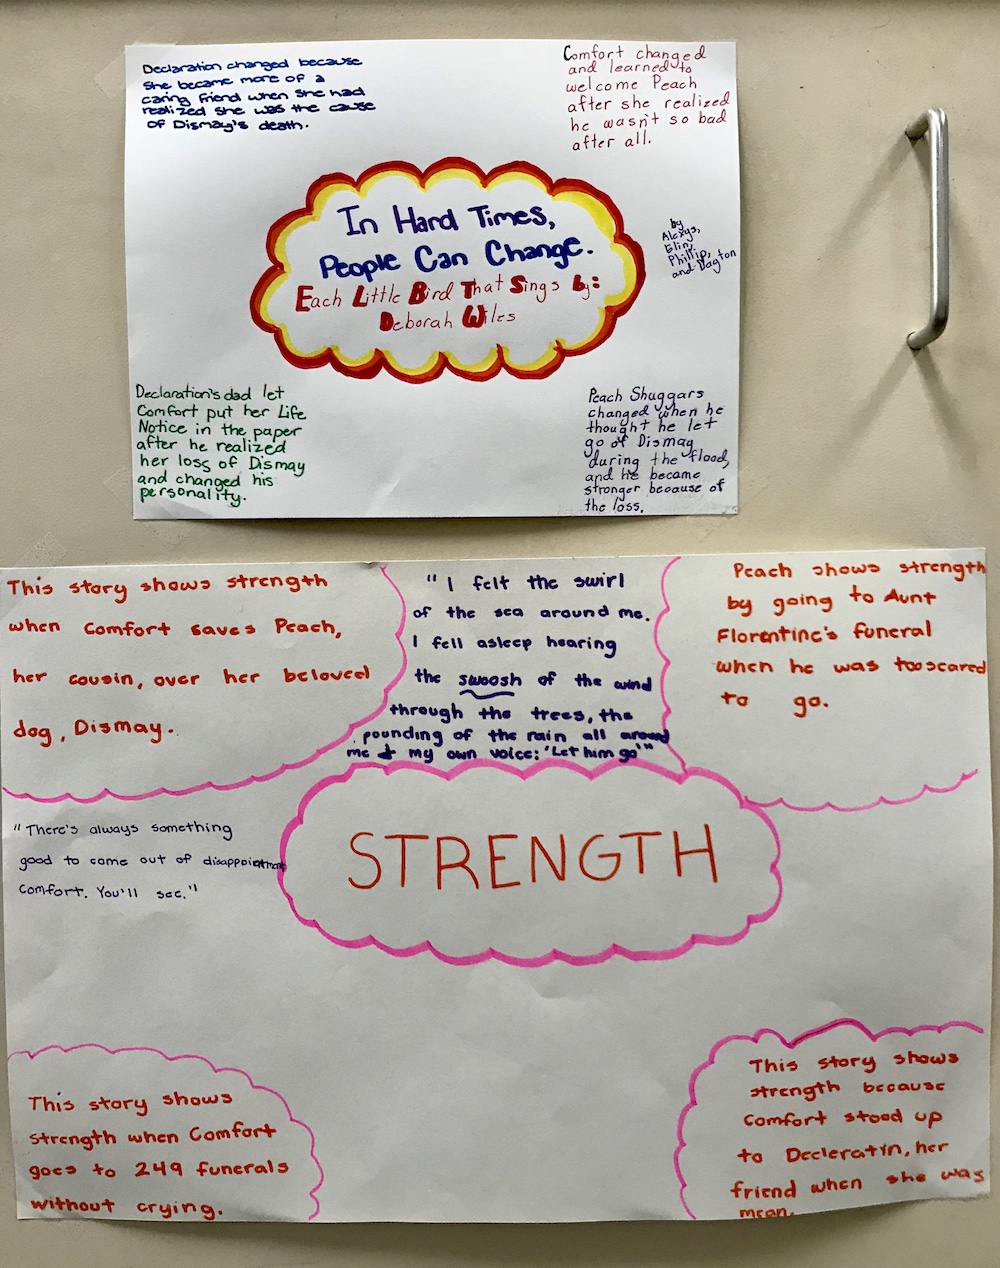 Declaration changed because
she became more of a
caring friend when she had
realized she was the cause
of Dismay's death.
Comfort changed
and learned to
welcome Peach
after she realized
he wasn't so bad
after all.
In Hard Times,
People Can Change.
Each Little Bird That Sings by:
Deborah Wiles
by
Alexys,
Elin,
Phillip,
and Dayton
Declaration's dad let
Comfort put her Life
Notice in the paper
after he realized
her loss of Dismay
and changed his
personality.
Peach Shuggars
changed when he
thought he let
go of Dismay
during the flood,
and he became
stronger because of
the loss.
This story shows strength
when Comfort saves Peach,
her cousin, over her beloved
dog, Dismay.
"I felt the swirl
of the sea around me.
I fell asleep hearing
the swoosh of the wind
through the trees, the
pounding of the rain all around
me & my own voice: 'Let him go'"
Peach shows strength
by going to Aunt
Florentine's funeral
when he was too scared
to go.
"There's always something
good to come out of disappointment
Comfort. You'll see."
STRENGTH
This story shows
strength when Comfort
goes to 249 funerals
without crying.
This story shows
strength because
Comfort stood up
to Decleratin, her
friend when she was
mean.